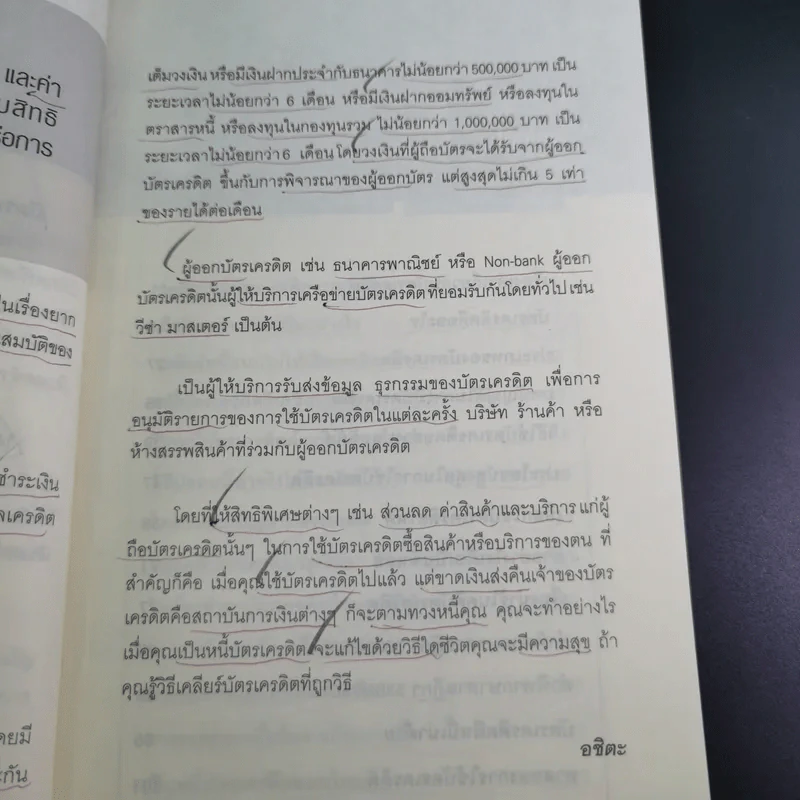 และค่า
สิทธิ
อการ
นเรื่องยาก
สมบัติของ
ชำระเงิน
เครดิต
กัน
เต็มวงเงิน หรือมีเงินฝากประจำกับธนาคารไม่น้อยกว่า 500,000 บาท เป็น
ระยะเวลาไม่น้อยกว่า 6 เดือน หรือมีเงินฝากออมทรัพย์ หรือลงทุนใน
ตราสารหนี้ หรือลงทุนในกองทุนรวม ไม่น้อยกว่า 1,000,000 บาท เป็น
ระยะเวลาไม่น้อยกว่า 6 เดือน โดยวงเงินที่ผู้ถือบัตรจะได้รับจากผู้ออก
บัตรเครดิต ขึ้นกับการพิจารณาของผู้ออกบัตร แต่สูงสุดไม่เกิน 5 เท่า
ของรายได้ต่อเดือน
ผู้ออกบัตรเครดิต เช่น ธนาคารพาณิชย์ หรือ Non-bank ผู้ออก
บัตรเครดิตนั้นผู้ให้บริการเครือข่ายบัตรเครดิตที่ยอมรับกันโดยทั่วไป เช่น
วีซ่า มาสเตอร์ เป็นต้น
เป็นผู้ให้บริการรับส่งข้อมูล ธุรกรรมของบัตรเครดิต เพื่อการ
อนุมัติรายการของการใช้บัตรเครดิตในแต่ละครั้ง บริษัท ร้านค้า หรือ
ห้างสรรพสินค้าที่ร่วมกับผู้ออกบัตรเครดิต
โดยที่ให้สิทธิพิเศษต่างๆ เช่น ส่วนลด ค่าสินค้าและบริการ แก่ผู้
ถือบัตรเครดิตนั้นๆ ในการใช้บัตรเครดิตซื้อสินค้าหรือบริการของตน ที่
สำคัญก็คือ เมื่อคุณใช้บัตรเครดิตไปแล้ว แต่ขาดเงินส่งคืนเจ้าของบัตร
เครดิตคือสถาบันการเงินต่างๆ ก็จะตามทวงหนี้คุณ คุณจะทำอย่างไร
เมื่อคุณเป็นหนี้บัตรเครดิต จะแก้ไขด้วยวิธีใดชีวิตคุณจะมีความสุข ถ้า
คุณรู้วิธีเคลียร์บัตรเครดิตที่ถูกวิธี
อชิตะ